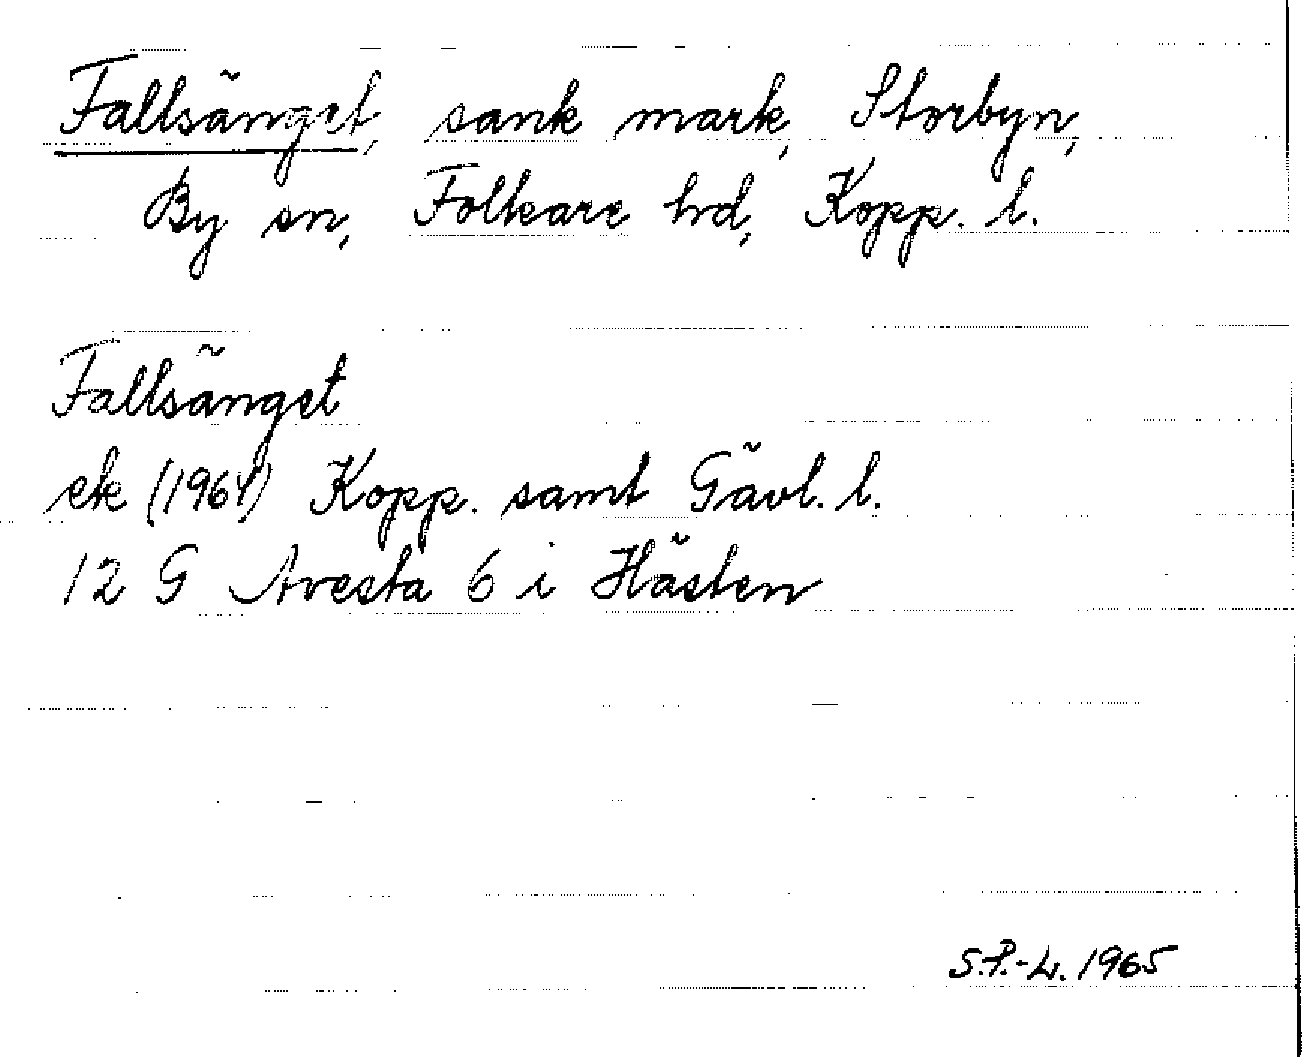 Fallsänget, sank mark, Storbyn,
By sn, Folkare hd, Kopp. l.
Fallsänget
ek (1964) Kopp. samt Gävl. l.
12 G Avesta 6 i Hästen
S.P.-L. 1965